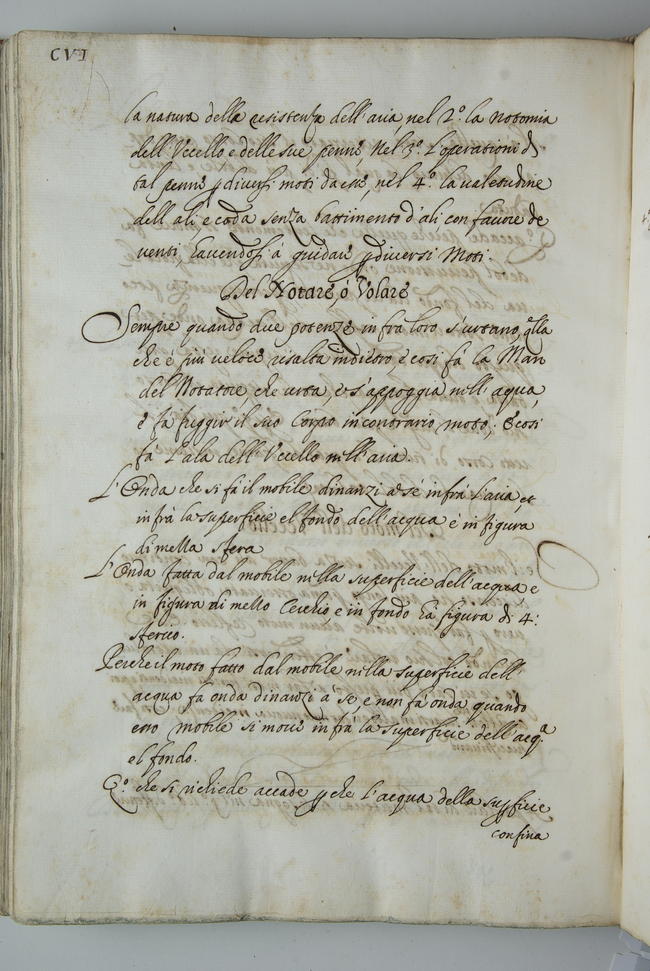 CVI
la natura della resistenza dell'aria, nel 2.º la notomia
dell'Vccello e delle sue penne Nel 3.º L'operationi di
tal penne ꝑ diversi moti da esse, nel 4.º la valetudine
dell'ali, e coda senza battimento d'ali con favore de
venti, havendosi à guidare ꝑ diversi Moti.
Del Notare, ò Volare
Sempre quando due potenze infra loro s'urtano, q̃lla
che è piú veloce risalta indietro, e cosi fà la Man
del Notatore, che urta, e s'appoggia nell'acqua,
e fa fuggir il suo Corpo in contrario moto; E cosi
fà L'ala dell'Vccello nell'aria.
L'Onda che si fà il mobile dinanzi a sé infrà L'aria, et
infrà la superficie el fondo dell'acqua è in figura
di mezza sfera
L'Onda fatta dal mobile nella superficie dell'acqua, e
in figura di mezzo Cerchio, e in fondo hà figura di 4:
sferico.
Perche il moto fatto dal mobile nella superficie dell'
acqua fa onda dinanzi à se, e non fà onda quando
esso mobile si move infrà la superficie dell'acq.ª
el fondo.
Q.º che si richiede accade ꝑ che l'acqua della suꝑficie
confina